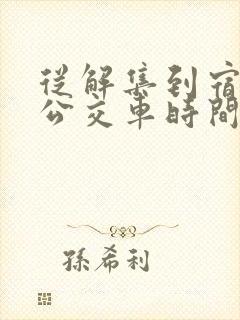 從解集到宿
公交車時間
孫希利